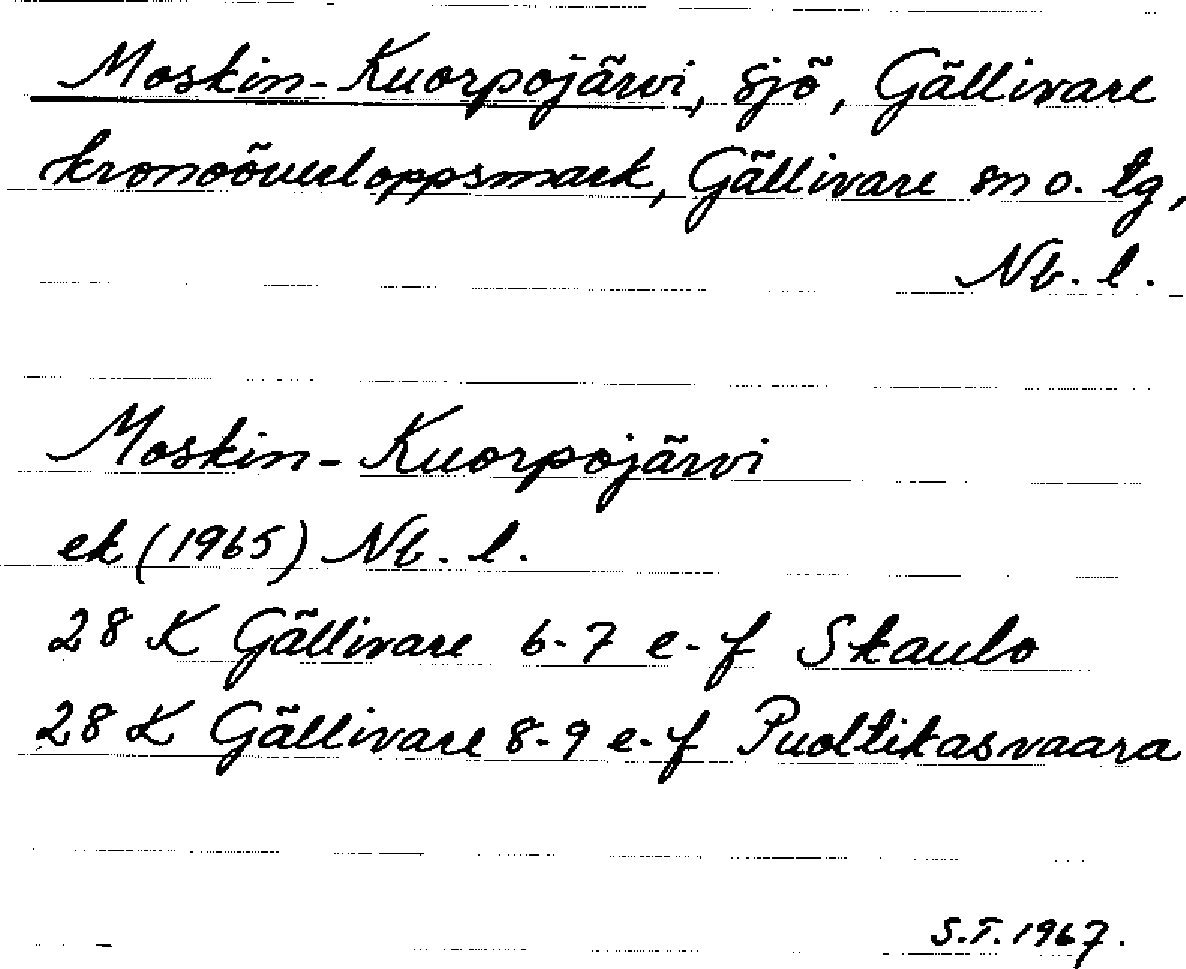 Moskin-Kuorpojärvi, sjö, Gällivare
kronoöverloppsmark, Gällivare sn o. tg,
Nb. l.
Moskin-Kuorpojärvi
ek (1965) Nb. l.
28 K Gällivare 6-7 e-f Skaulo
28 K Gällivare 8-9 e-f Puoltikasvaara
S.T. 1967.